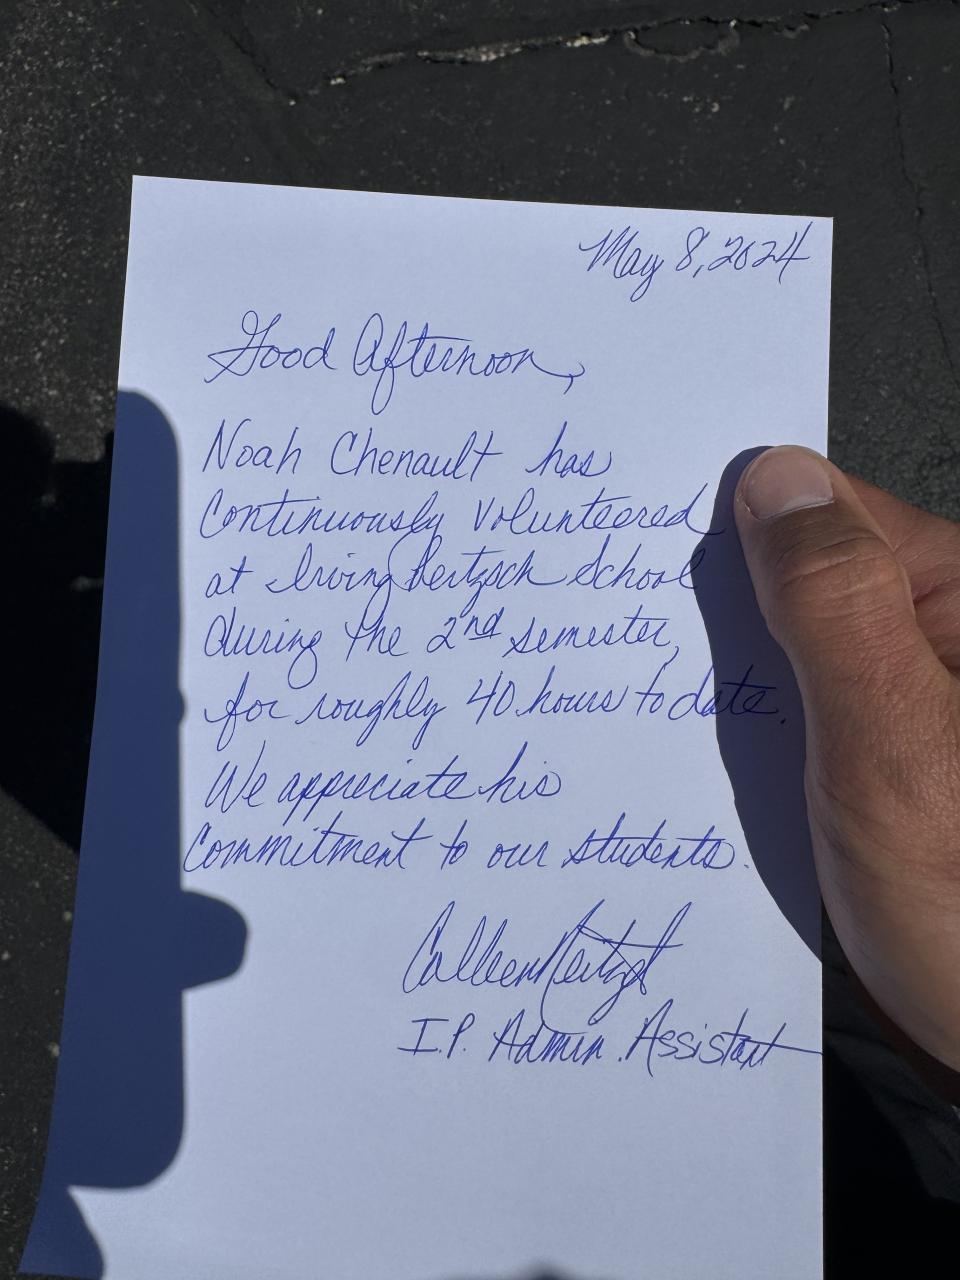 May 8, 2024
Good Afternoon,
Noah Chenault has
Continuously Volunteered
at Irving Pertzsch School
during the 2nd semester,
for roughly 40 hours to date.
We appreciate his
Commitment to our students.
Colleen
I.P. Admin. Assistant